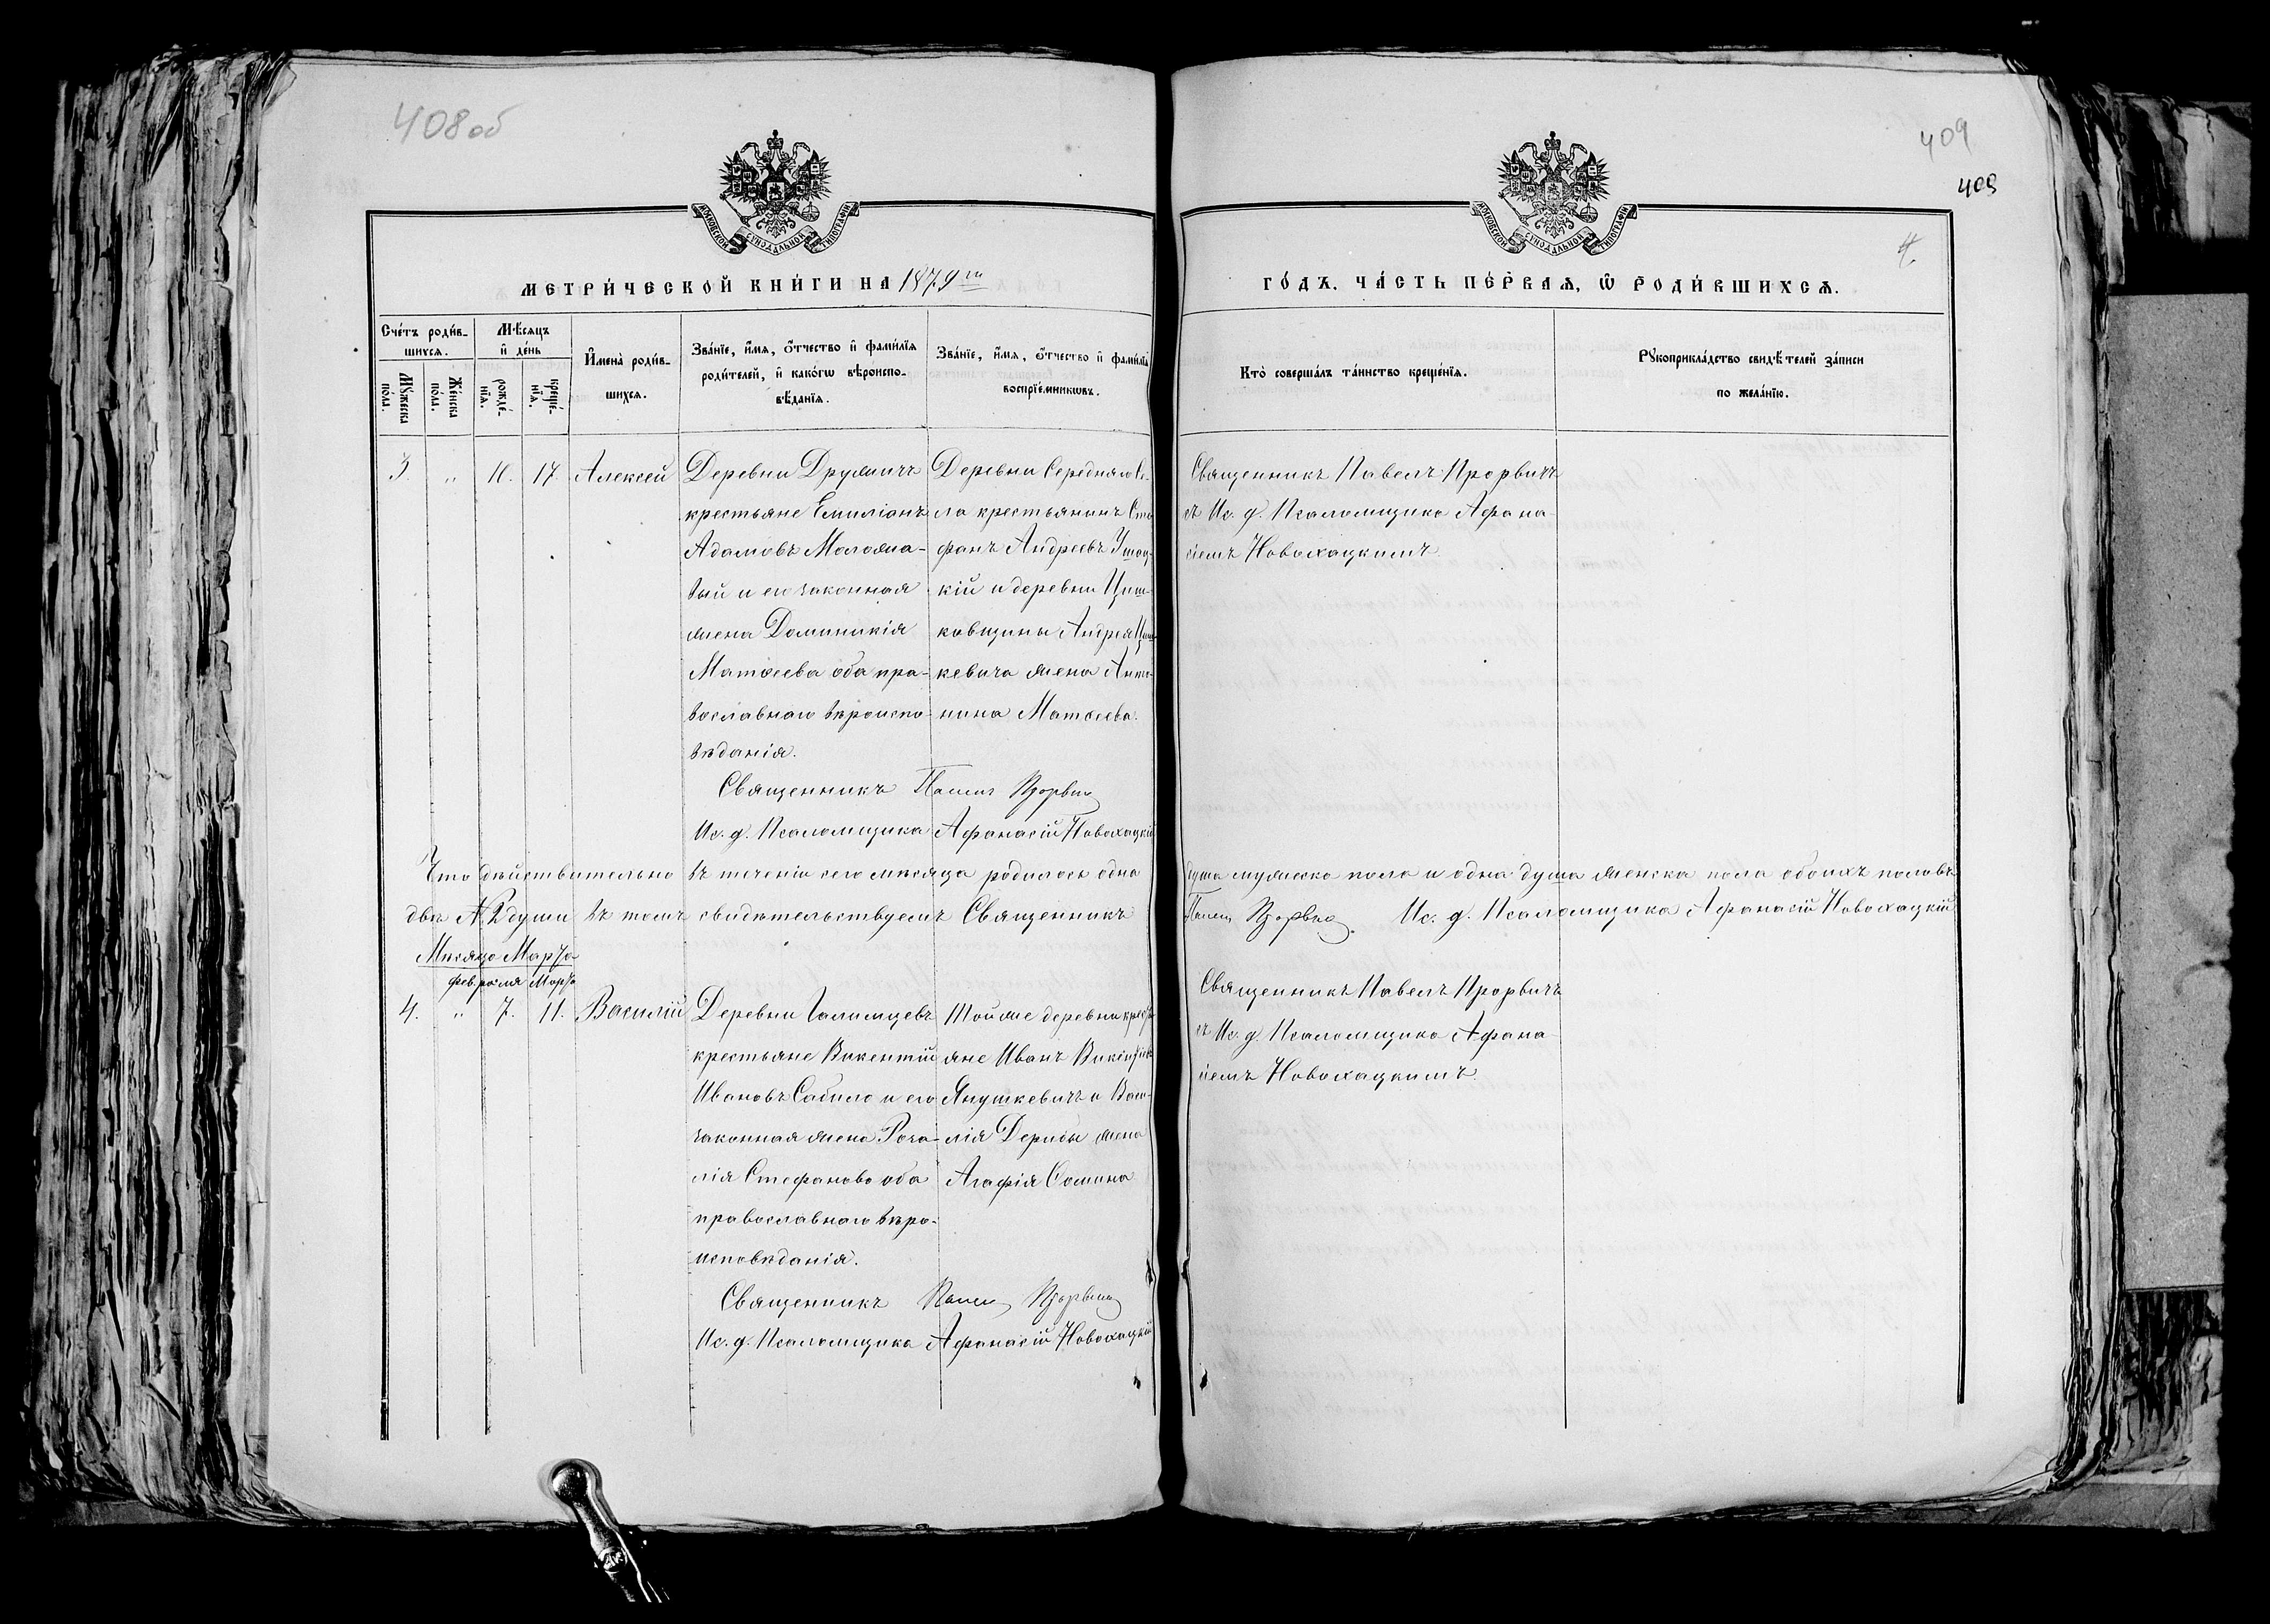 408об
МОСКОВСКОЙ СУНОДАЛЬНОЙ ТИПОГРАФІИ
МЕТРИ́ЧЕСКОЙ КНИ́ГИ НА 1879 го
Сче́тъ роди́в-
шихся.
Мѣ́сяцъ
и҆ де́нь
Мꙋ́жеска
по́ла.
Же́нска
по́ла.
рожде́-
нїѧ.
креще́-
нїѧ.
И҆мена̀ роди́в-
шихся.
Зва́нїе, и҆́мѧ, ѻ҆́тчество и҆ фами́лїѧ
роди́телей, и҆ како́гѡ вѣроиспо-
вѣ́данїѧ.
Зва́нїе, и҆́мѧ, ѻ҆́тчество и҆ фами́лїѧ
воспрїе́мникѡвъ.
3. " 11. 17. Алексей
Деревни Дружичъ
крестьяне Емиліанъ
Адамовъ Маложа-
вый и его законная
жена Доминикія
Матѳеева оба пра-
вославнаго вѣроиспо-
вѣданія.
Деревни Середняго Се-
ла крестьянинъ Сте-
фанъ Андреевъ
кій и деревни Циш-
ковщины Андрея Циш-
кевича жена Анто-
нина Матѳеева.
Священникъ Павелъ Прорвич
Ис. д. Псаломщика Афанасій Новохацкій
Что дѣйствительно въ теченіи сего мѣсяца родилось одна
двѣ № 2 души въ томъ свидѣтельствуемъ Священникъ
Мѣсяца Марта
февраля Марта
4. " 7. 11. Василій
Деревни Галимцевъ
крестьяне Викентій
Ивановъ Сабило и его
законная жена Роза-
лія Стефанова оба
православнаго вѣро-
исповѣданія.
Той же деревни кресть-
яне Иванъ Викентіевъ
Янушкевичъ и Васи-
лія Дерибы жена
Агафія Ѳомина
Священникъ Павелъ Прорвич
Ис. д. Псаломщика Афанасій Новохацкій
409
409
4.
МОСКОВСКОЙ СУНОДАЛЬНОЙ ТИПОГРАФІИ
ГО́ДЪ. ЧА́СТЬ ПЕ́РВАѦ, Ѡ҆ РОДИ́ВШИХСѦ.
Кто̀ соверша́лъ та́инство креще́нїѧ.
Рꙋкоприкла́дство свидѣ́телей за́писи
по жела́нїю.
Священникъ Павелъ Прорвичъ
съ Ис. д. Псаломщика Афана-
сіемъ Новохацкимъ.
душа мужеска пола и одна душа женска пола обоихъ половъ
Павелъ Прорвич. Ис. д. Псаломщика Афанасій Новохацкій
Священникъ Павелъ Прорвичъ
съ Ис. д. Псаломщика Афана-
сіемъ Новохацкимъ.